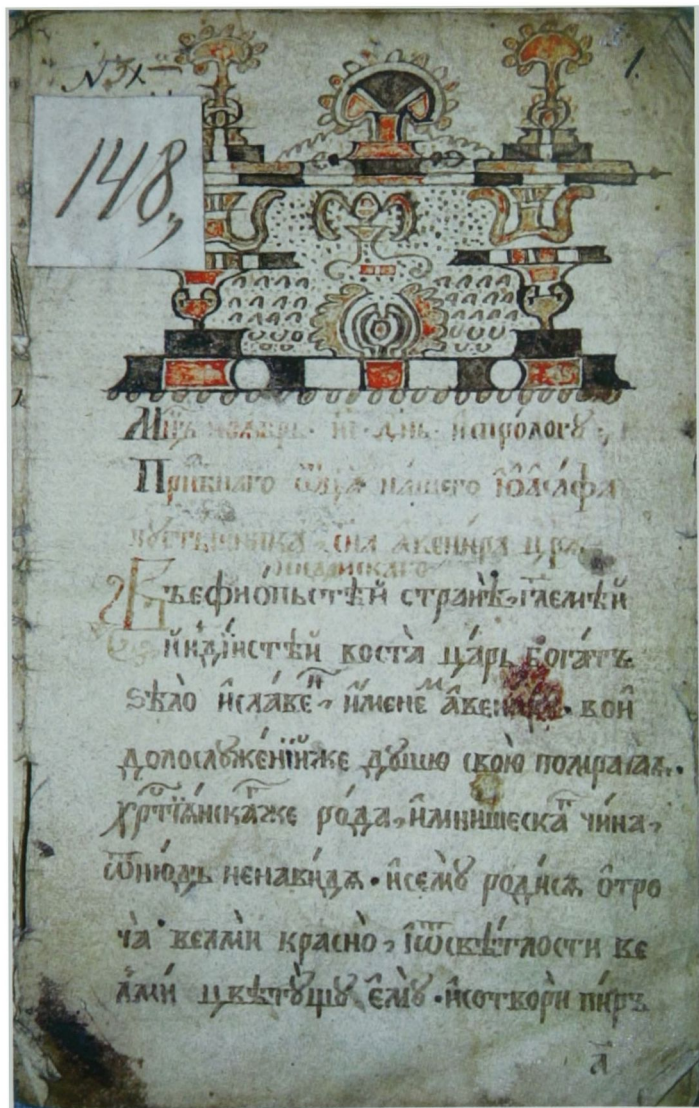 148,
1.
Мцⷭ҇а ноѧбрѧ · ѳі · днь · ѿпрологу ·
Прпⷣбнаго ѿц҃а нашего іѡасафа
пустынника сн҃а авенира цр҃ѧ
индійскаго
Въефиопьстѣй странѣ, гл҃емѣй
индійстѣй костѧ царь богатъ
ѕѣло иславеⷩ҇, именеⷨ авениръ · вой
долослуженїиже душю свою помрачаѧ ·
хрⷭ҇тїѧнскаⷢ҇же рода, имнишескаⷢ҇ чина,
ѿнюдъ ненавидѧ · исему родисѧ отро
ча велми красно, іѿсвѣтлости ве
лми цвѣтущу ему · исотвори пиръ
а҃